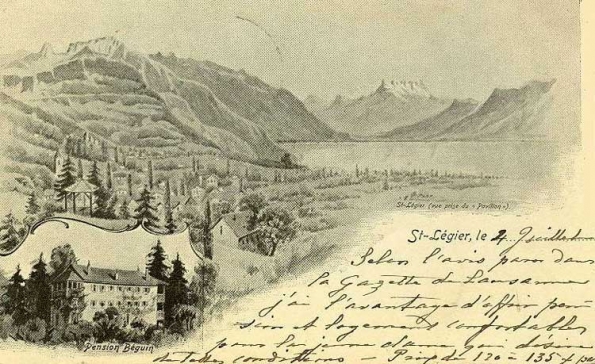 St-Légier (vue prise du « Pavillon »).
St-Légier, le 4 Juillet
Selon l'avis paru dans
la Gazette de Lausanne
j'ai l'avantage d'offrir pen-
sion et logement confortables
pour la jeune dame qui désire
de telles conditions – Prix de 120 à 135 f. par
Pension Béguin